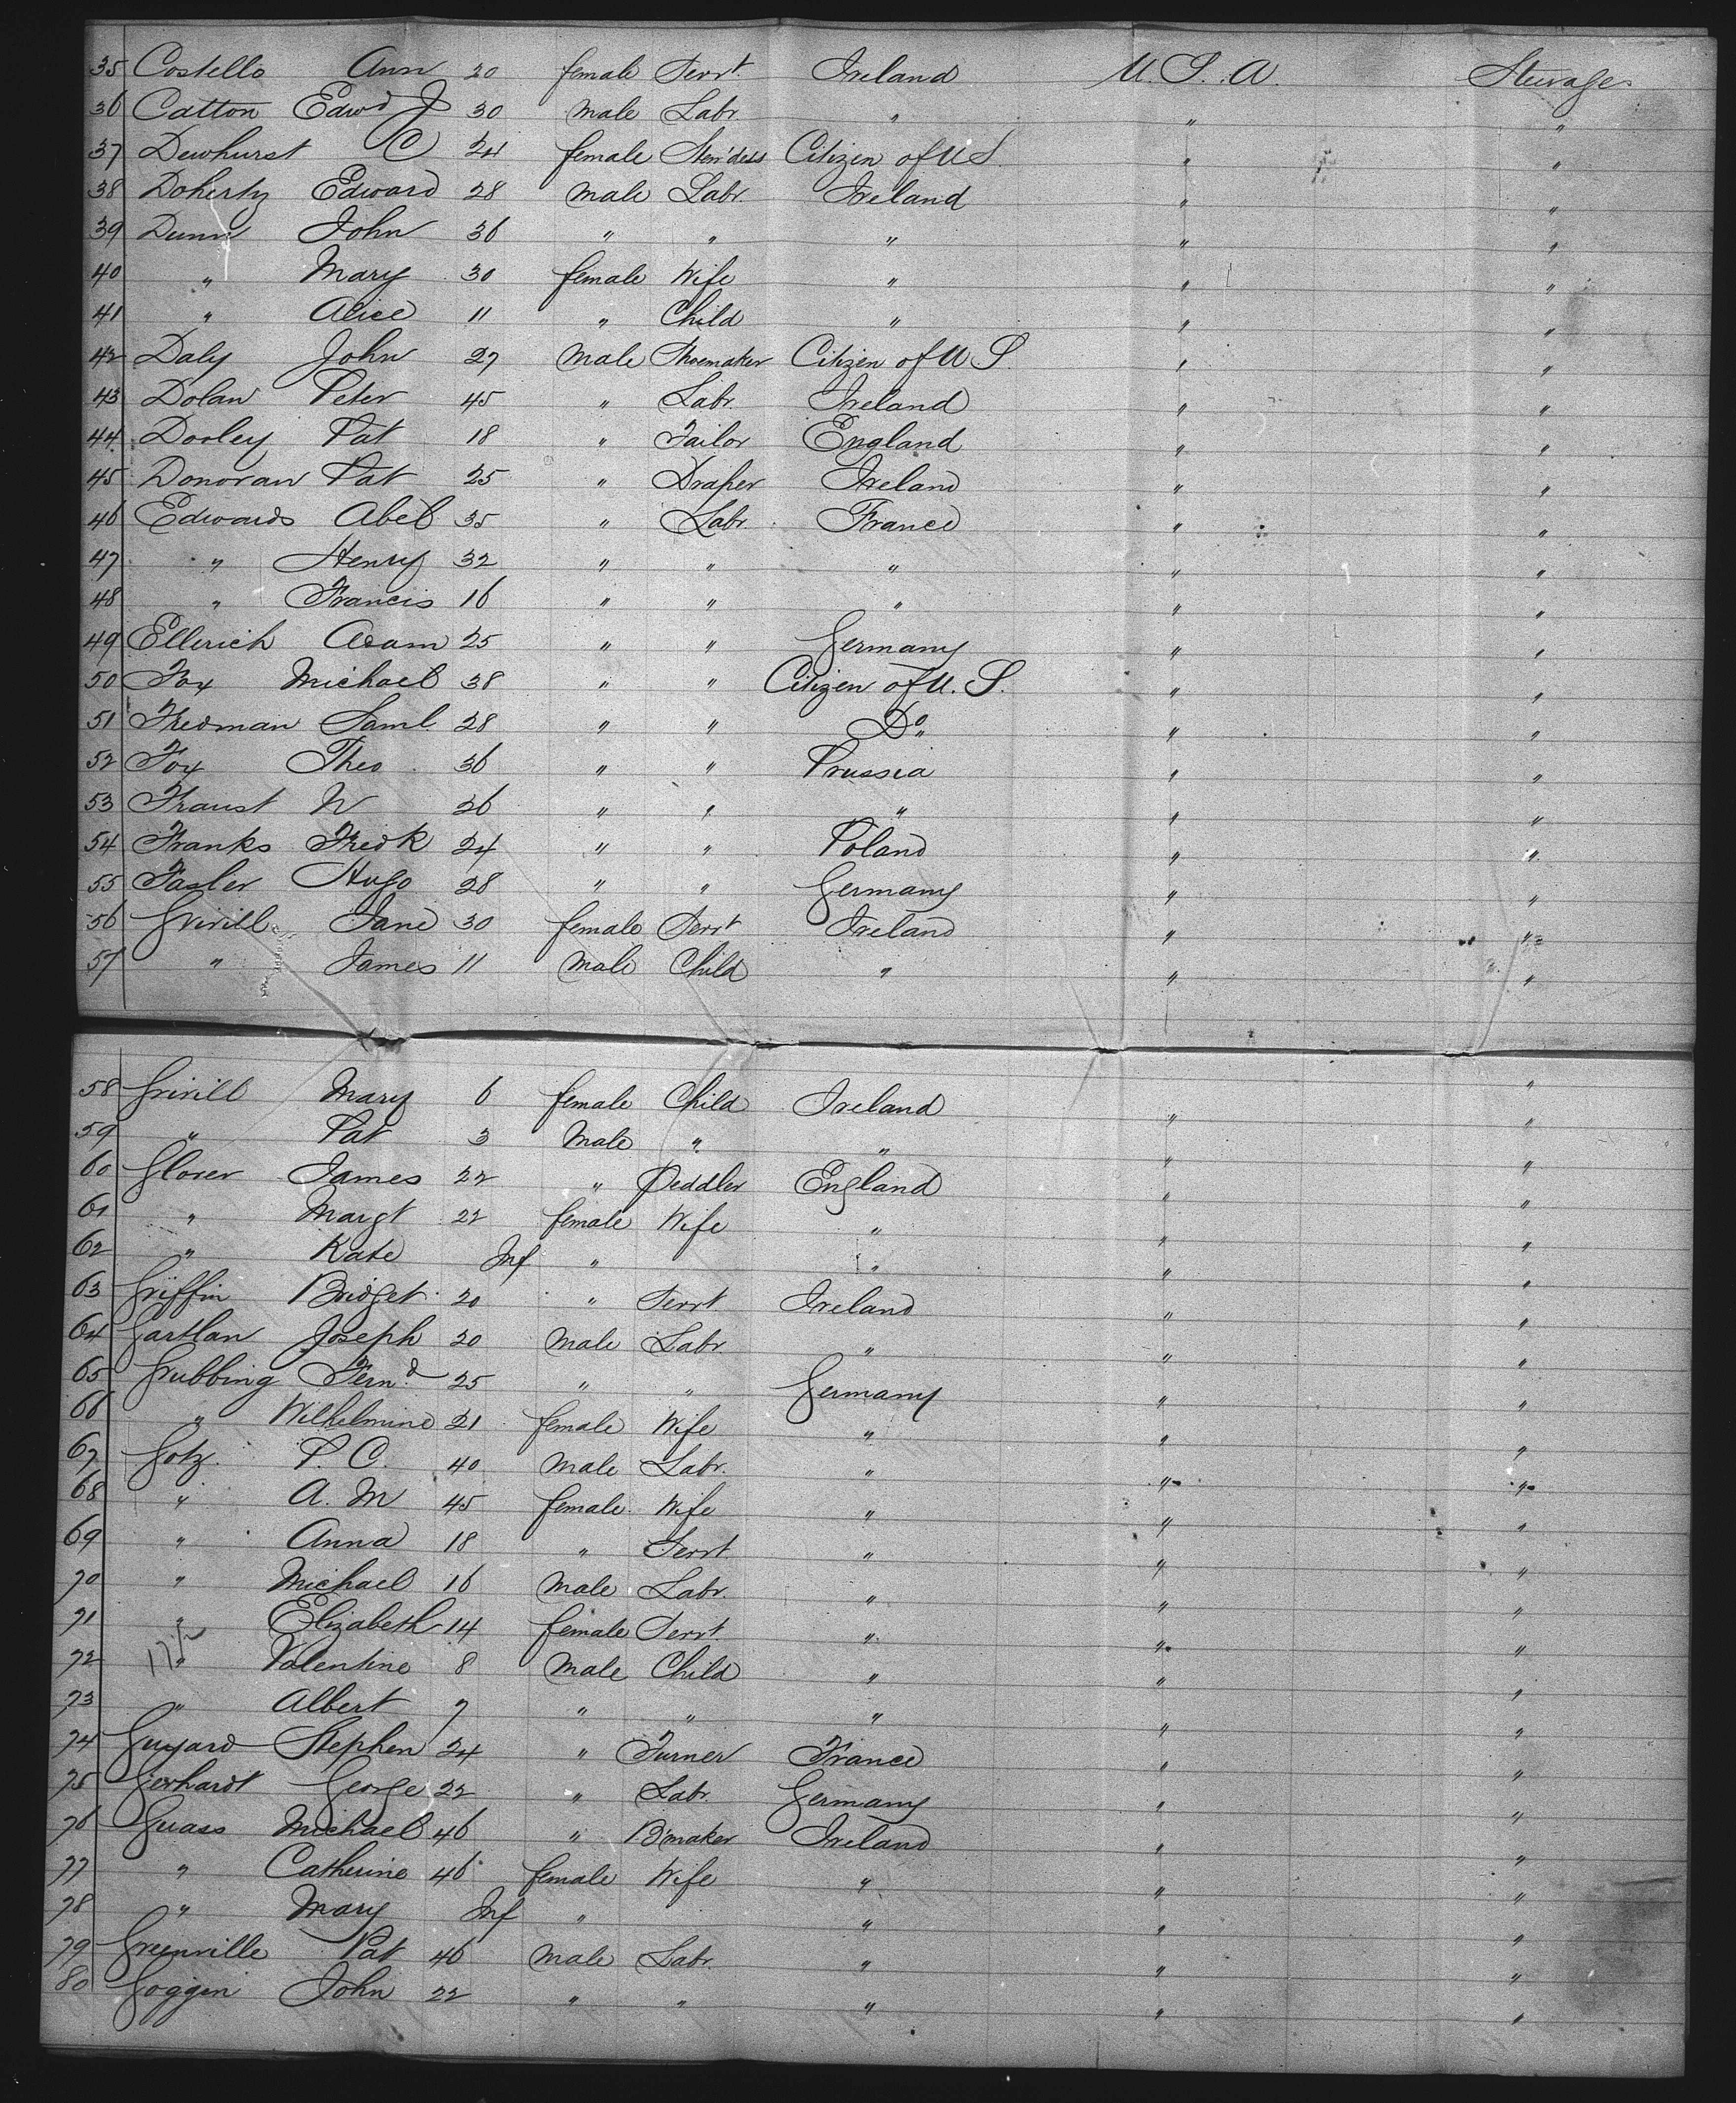 35 Costello Ann 20 female Servt. Ireland U. S. A. Steerage
36 Catton Edwd J 30 male Labr. " " "
37 Dewhurst C 24 female Stew'dess Citizen of U S. " "
38 Doherty Edward 28 male Labr. Ireland " "
39 Dunn John 36 " " " " "
40 " Mary 30 female Wife " " "
41 " Alice 11 " Child " " "
42 Daly John 27 male Shoemaker Citizen of U S. " "
43 Dolan Peter 45 " Labr. Ireland " "
44 Dooley Pat 18 " Tailor England " "
45 Donovan Pat 25 " Draper Ireland " "
46 Edwards Abel 35 " Labr. France " "
47 " Henry 32 " " " " "
48 " Francis 16 " " " " "
49 Ellerich Adam 25 " " Germany " "
50 Fox Michael 38 " " Citizen of U. S. " "
51 Fredman Saml. 28 " " Do " "
52 Fox Theo 36 " " Prussia " "
53 Fraust W 26 " " " " "
54 Franks Fredk 24 " " Poland " "
55 Fasler Hugo 28 " " Germany " "
56 Grivill Jane 30 female Servt Ireland " "
57 " James 11 male Child " " "
58 Grivill Mary 6 female Child Ireland " "
59 " Pat 3 male " " " "
60 Glover James 22 " Peddler England " "
61 " Margt 22 female Wife " " "
62 " Kate Inf " " " "
63 Griffin Bridget 20 " Servt Ireland " "
64 Gartlan Joseph 20 male Labr. " " "
65 Grubbing Fernd 25 " " Germany " "
66 " Wilhelmine 21 female Wife " " "
67 Gotz P. C. 40 male Labr. " " "
68 " A. M 45 female Wife " " "
69 " Anna 18 " Servt. " " "
70 " Michael 16 male Labr. " " "
71 " Elizabeth 14 female Servt. " " "
72 " Valentine 8 male Child " " "
73 " Albert 7 " " " " "
74 Guyard Stephen 24 " Turner France " "
75 Gerhardt George 22 " Labr. Germany " "
76 Guass Michael 46 " B'maker Ireland " "
77 " Catherine 46 female Wife " " "
78 " Mary Inf " " " "
79 Greenville Pat 46 male Labr. " " "
80 Goggin John 22 " " " " "